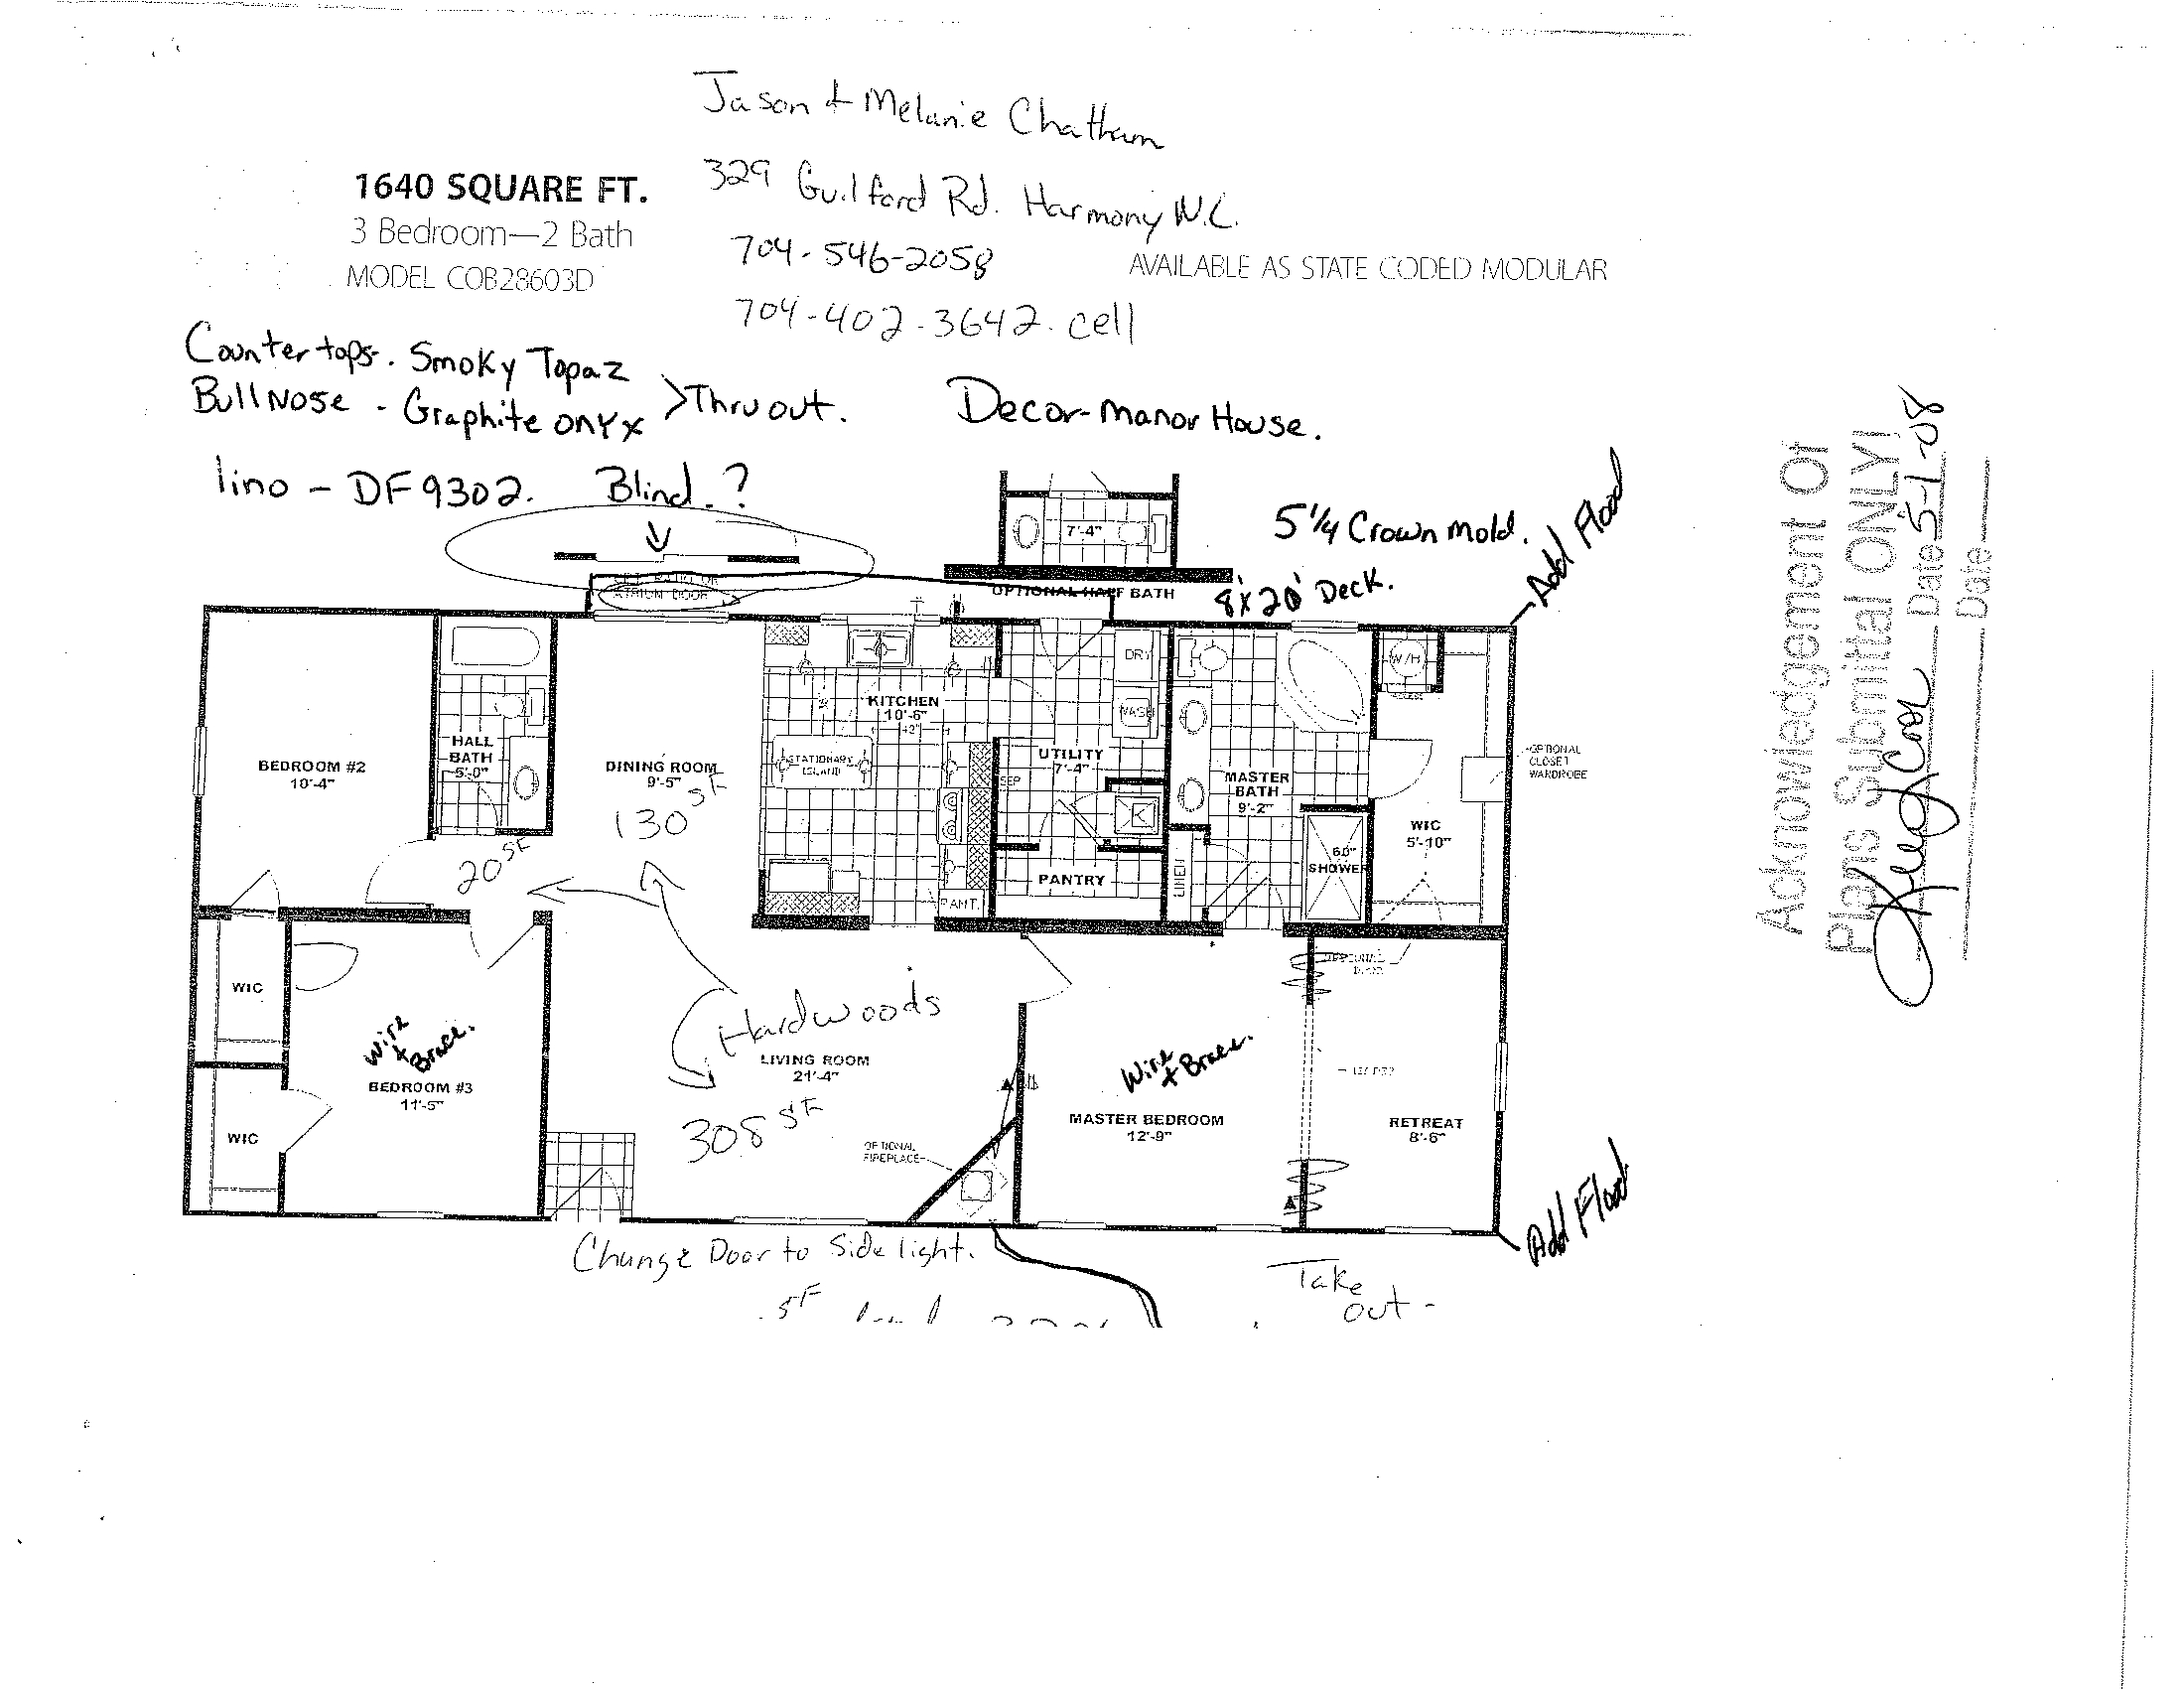 Jason + Melanie Chatham
329 Guilford Rd. Harmony N.C.
704-546-2058
704-402-3642 cell
1640 SQUARE FT.
3 Bedroom—2 Bath
MODEL COB28603D
AVAILABLE AS STATE CODED MODULAR
Countertops. Smoky Topaz
BullNose - Graphite onyx >Thruout.
Decor-Manor House.
lino - DF9302. Blind.?
7'-4"
5 1/4 Crown Mold.
Add Flood
ATRIUM DOOR
OPTIONAL HALF BATH
8'x20' Deck.
DRY
W/H
WASH
KITCHEN
10'-6"
HALL
BATH
5'-0"
BEDROOM #2
10'-4"
DINING ROOM
9'-5"
130 SF
STATIONARY
ISLAND
UTILITY
7'-4"
REP
MASTER
BATH
9'-2"
OPTIONAL
CLOSET
WARDROBE
WIC
5'-10"
20 SF
60"
SHOWER
LINEN
PANTRY
PANT.
OPTIONAL
WIC
Hardwoods
Wire
+ Brace.
BEDROOM #3
11'-5"
LIVING ROOM
21'-4"
308 SF
Wire
+ Brace.
MASTER BEDROOM
12'-9"
RETREAT
8'-6"
WIC
OPTIONAL
FIREPLACE
Add Flood
Change Door to Side light.
Take
out -
SF
Acknowledgement Of
Plans Submittal ONLY!
Date 5-1-08
Date